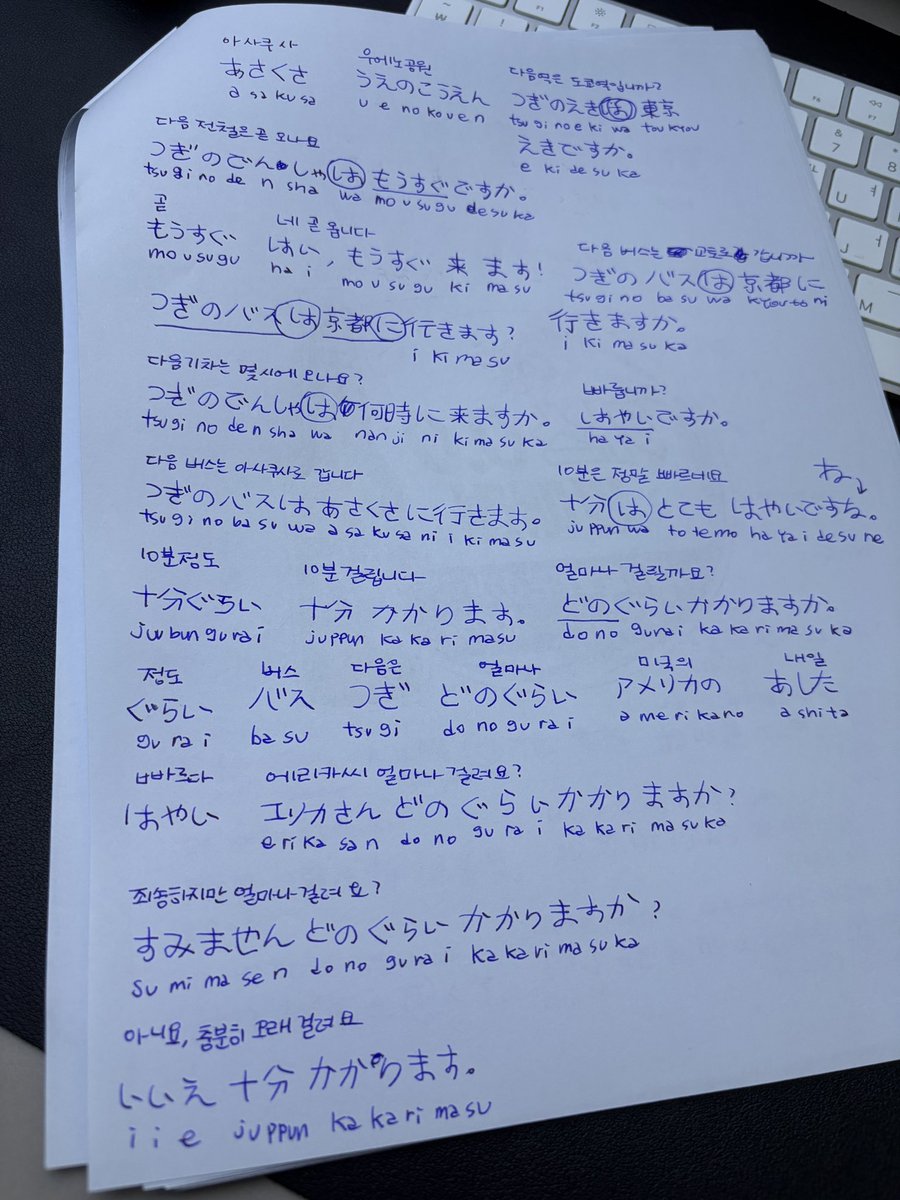 아사쿠사 우에노공원 다음역은 도쿄역입니까?
あさくさ うえのこうえん つぎのえきは東京
a sa ku sa u e no kou en tsu gi no e ki wa tou kyou
えきですか。
e ki de su ka
다음 전철은 곧 오나요
つぎのでんしゃはもうすぐですか。
tsu gi no de n sha wa mo u su gu de su ka
곧 네 곧 옵니다
もうすぐ はい, もうすぐ来ます!
mo u su gu ha i mo u su gu ki ma su
다음 버스는 교토로 갑니까
つぎのバスは京都に
tsu gi no ba su wa kyou to ni
行きますか。
i ki ma su ka
つぎのバスは京都に行きます?
i ki ma su
다음기차는 몇시에 오나요? 빠릅니까?
つぎのでんしゃは何時に来ますか。 はやいですか。
tsu gi no de n sha wa nan ji ni ki ma su ka ha ya i
다음 버스는 아사쿠사로 갑니다 10분은 정말 빠르네요 ね
つぎのバスはあさくさに行きます。 十分はとてもはやいですな。
tsu gi no ba su wa a sa ku sa ni i ki ma su juppun wa to te mo ha ya i de su ne
10분정도 10분걸립니다 얼마나 걸릴까요?
十分ぐらい 十分かかります。 どのぐらいかかりますか。
juu bun gu ra i juppun ka ka ri masu do no gurai ka ka ri ma su ka
정도 버스 다음은 얼마나 미국의 내일
ぐらい バス つぎ どのぐらい アメリカの あした
gu ra i ba su tsu gi do no gu ra i a me ri ka no a shi ta
빠르다 에리카씨 얼마나 걸려요?
はやい エリカさんどのぐらいかかりますか?
e ri ka sa n do no gu ra i ka ka ri ma su ka
죄송하지만 얼마나 걸려요?
すみませんどのぐらいかかりますか?
su mi ma se n do no gu ra i ka ka ri ma su ka
아니요, 충분히 오래 걸려요
いいえ十分かかります。
i i e juppun ka ka ri ma su